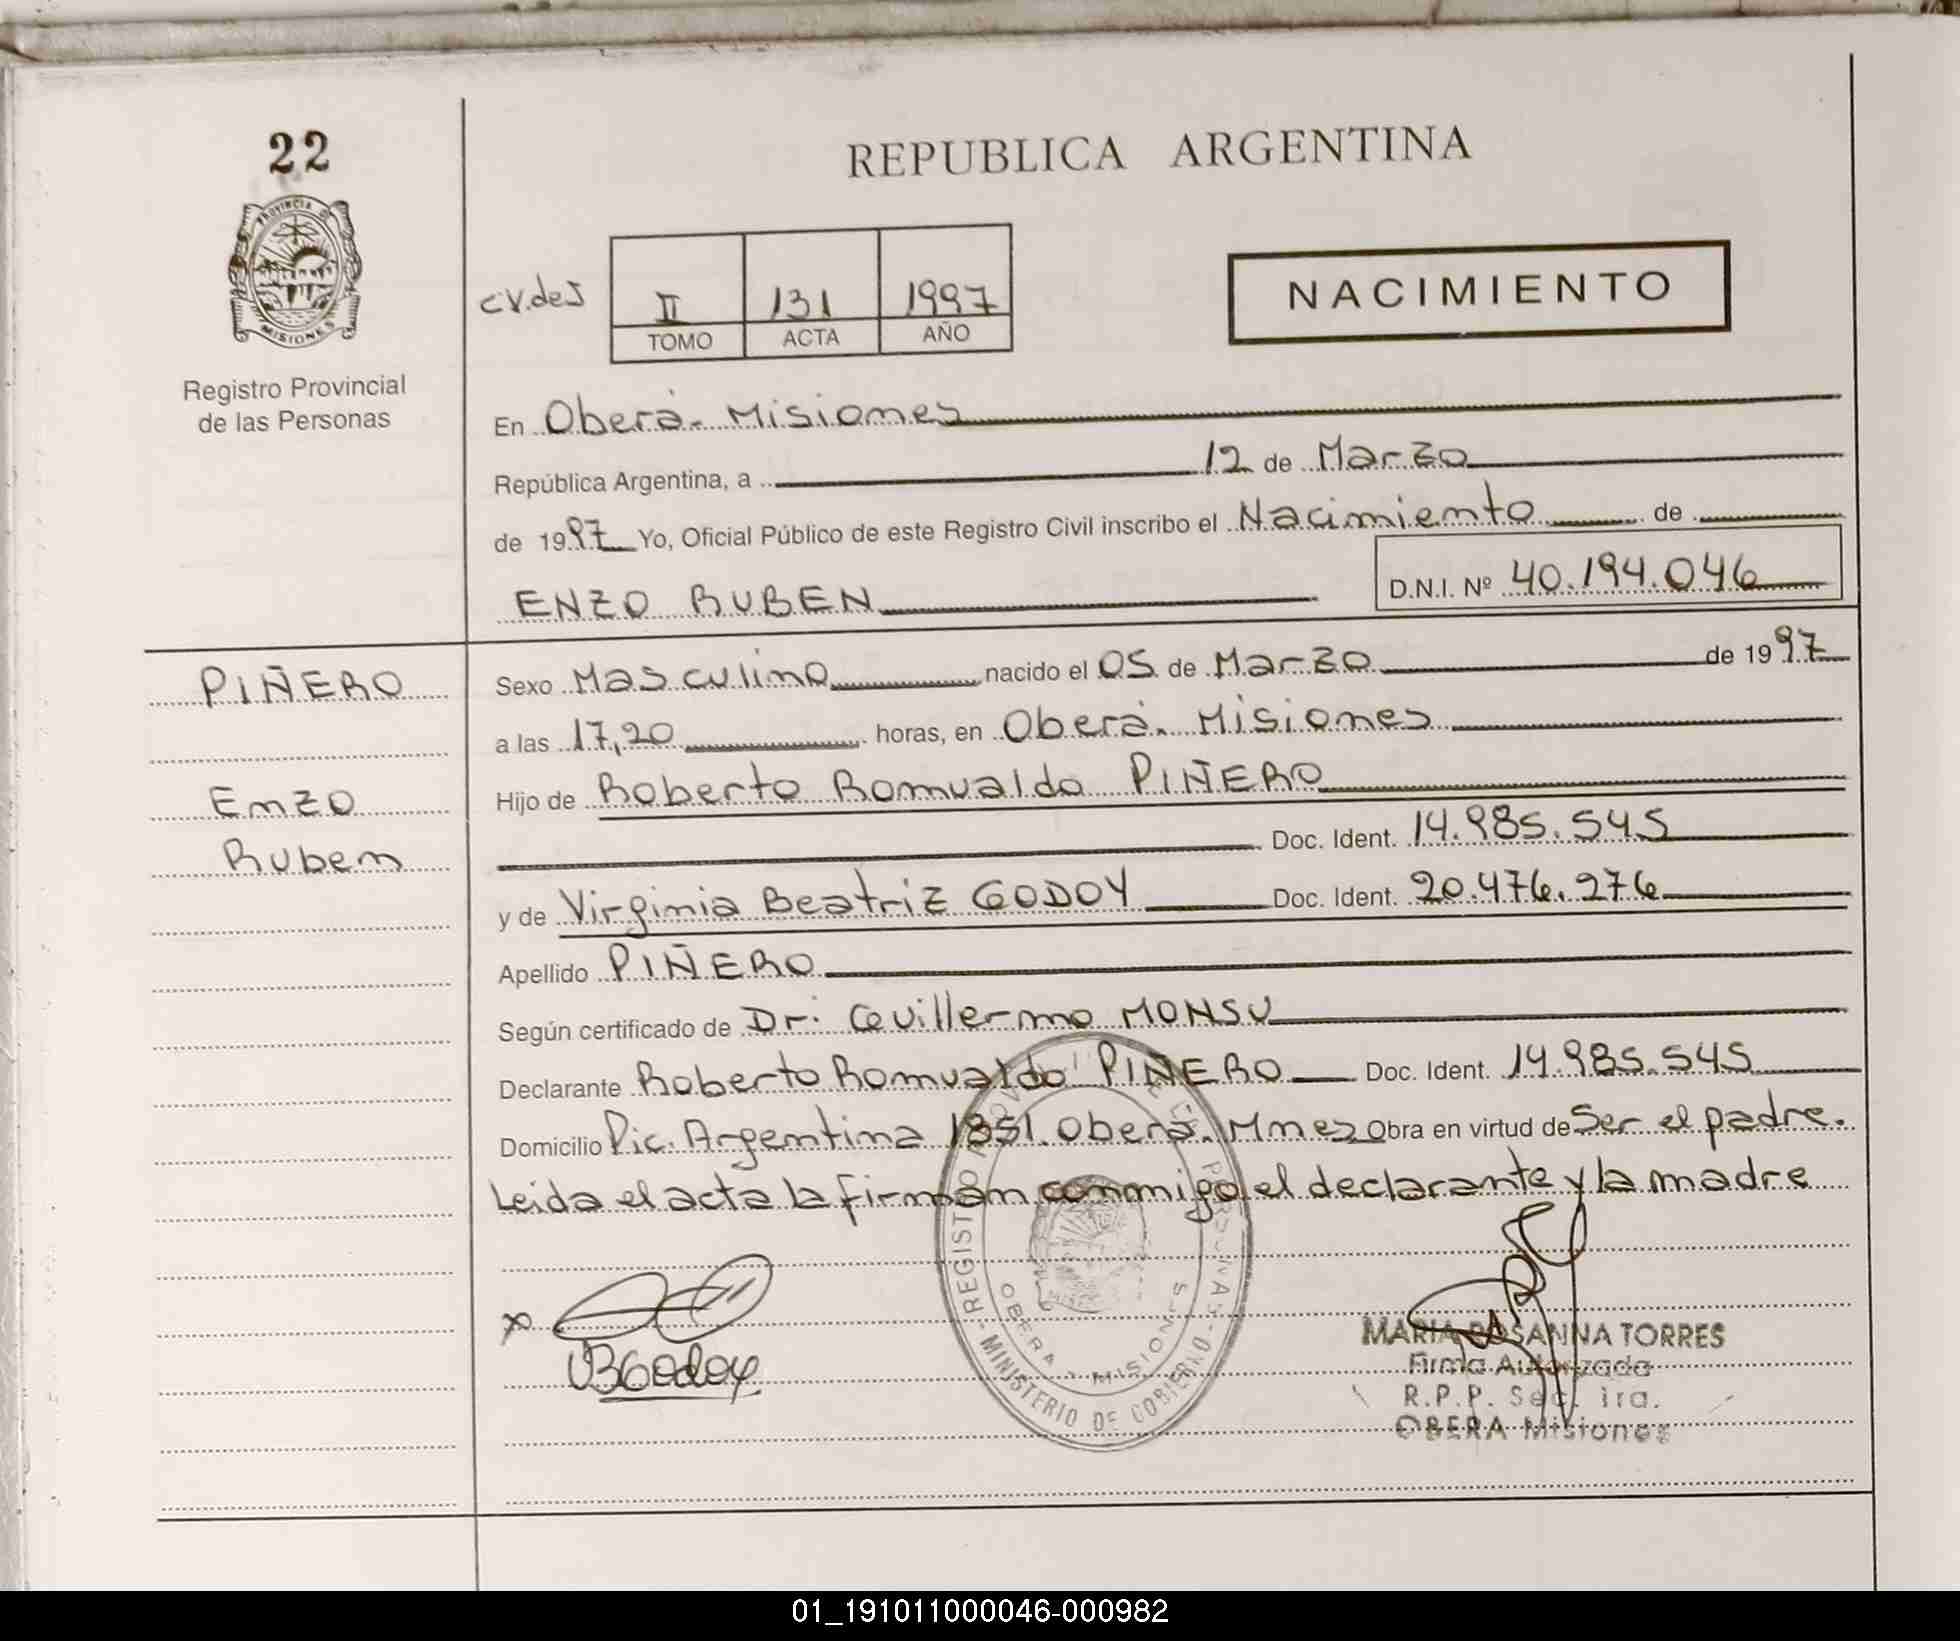 22
REPUBLICA ARGENTINA
PROVINCIA D
MISIONES
Registro Provincial
de las Personas
cv.deJ
II 131 1997
TOMO ACTA AÑO
NACIMIENTO
En Oberá. Misiones
República Argentina, a 12 de Marzo
de 1997 Yo, Oficial Público de este Registro Civil inscribo el Nacimiento de
ENZO RUBEN D.N.I. Nº 40.194.046
PIÑERO
Enzo
Ruben
Sexo Masculino nacido el 05 de Marzo de 1997
a las 17,20 horas, en Oberá. Misiones
Hijo de Roberto Romualdo PIÑERO
Doc. Ident. 14.985.545
y de Virginia Beatriz GODOY Doc. Ident. 20.476.276
Apellido PIÑERO
Según certificado de Dr: Guillermo MONSU
Declarante Roberto Romualdo PIÑERO Doc. Ident. 14.985.545
Domicilio Pic. Argentina 1851. Oberá. Mnes Obra en virtud de Ser el padre.
Leida el acta la firman conmigo el declarante y la madre
x
VBGodoy
REGISTRO PROV DE LAS PERSONAS
MINISTERIO DE GOBIERNO
OBERA - MISIONES
MARIA ROSANNA TORRES
Firma Autorizada
R.P.P. Sec. 1ra.
OBERA Misiones
01_191011000046-000982